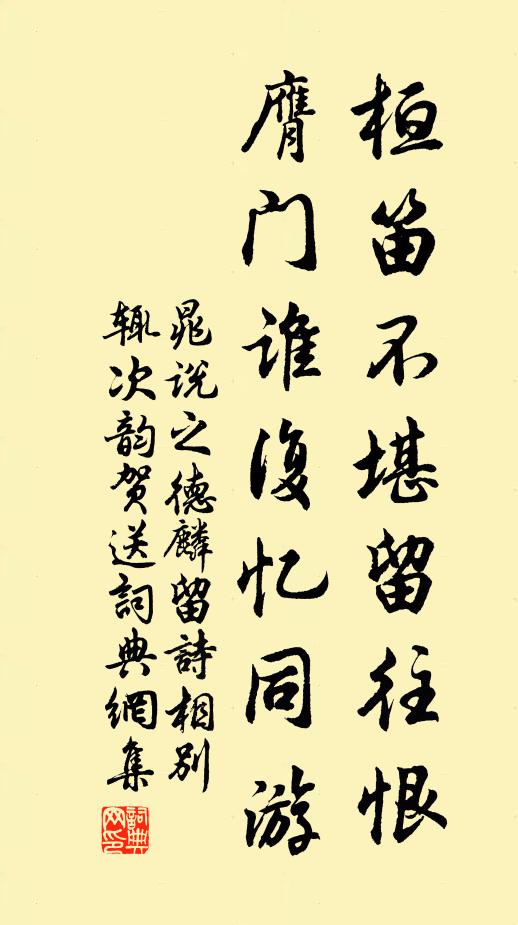 桓笛不堪留往恨
膺门谁复忆同游
晁说之德麟留詩相别
辄次韵贺送詞典網集
詞典
网印